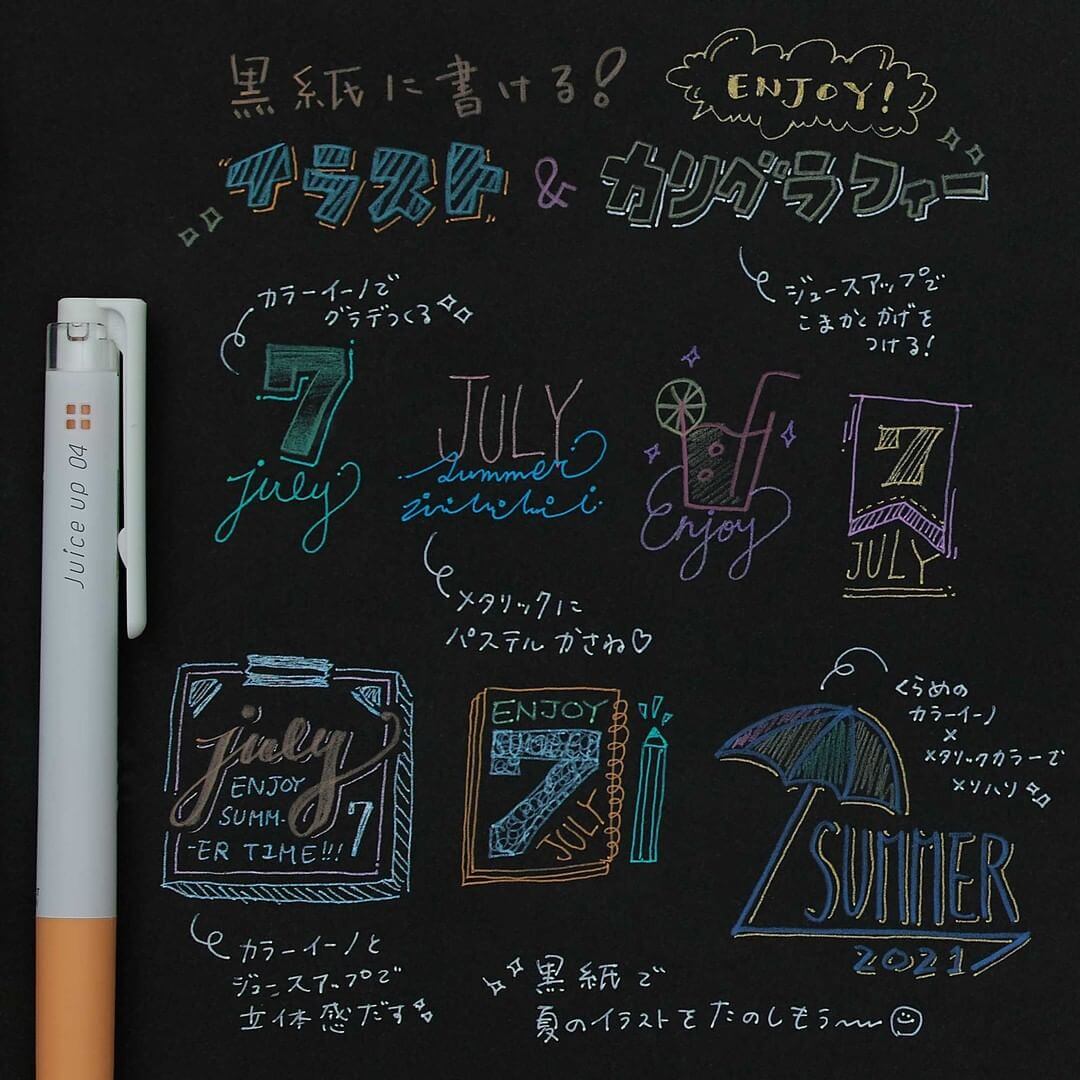 黒紙に書ける!
ENJOY!
イラスト & カリグラフィー
カラーイーノで
グラデつくる
ジュースアップで
こまかくかげを
つける!
7
july
JULY
summer
Enjoy
7
JULY
メタリックに
パステルかさね♡
Juice up 04
july
ENJOY
SUMM-
-ER TIME!!!
7
ENJOY
7
JULY
くらめの
カラーイーノ
×
メタリックカラーで
メリハリ
SUMMER
2021
カラーイーノと
ジュースアップで
立体感だす
黒紙で
夏のイラストをたのしもう〜〜